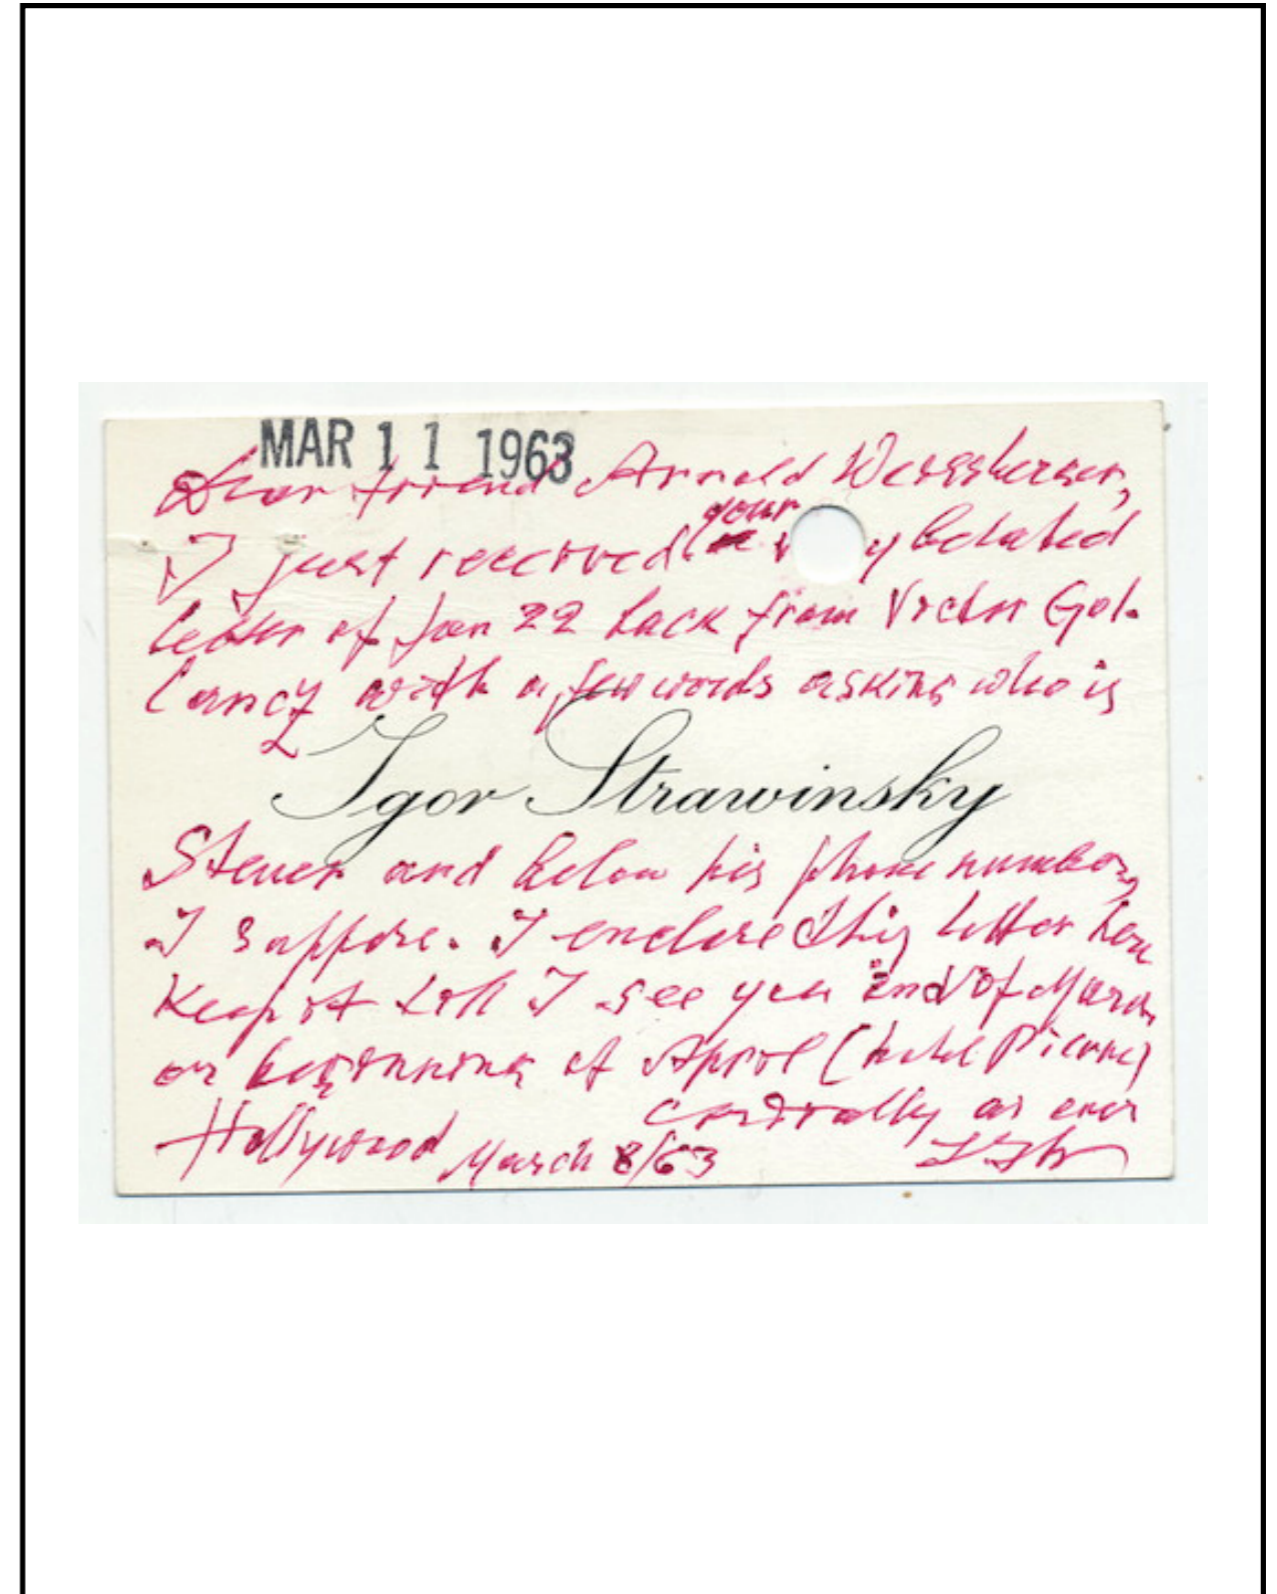 MAR 11 1963
Dear friend Arnold Weissberger,
your
I just received y belated
letter of Jan 22 back from Victor Gol-
lancz with a few words asking who is
Igor Strawinsky
Steuer and below his phone number,
I suppose. I enclose this letter here
Keep it till I see you end of March
or beginning of April (hotel Pierre)
cordially as ever
Hollywood March 8/63